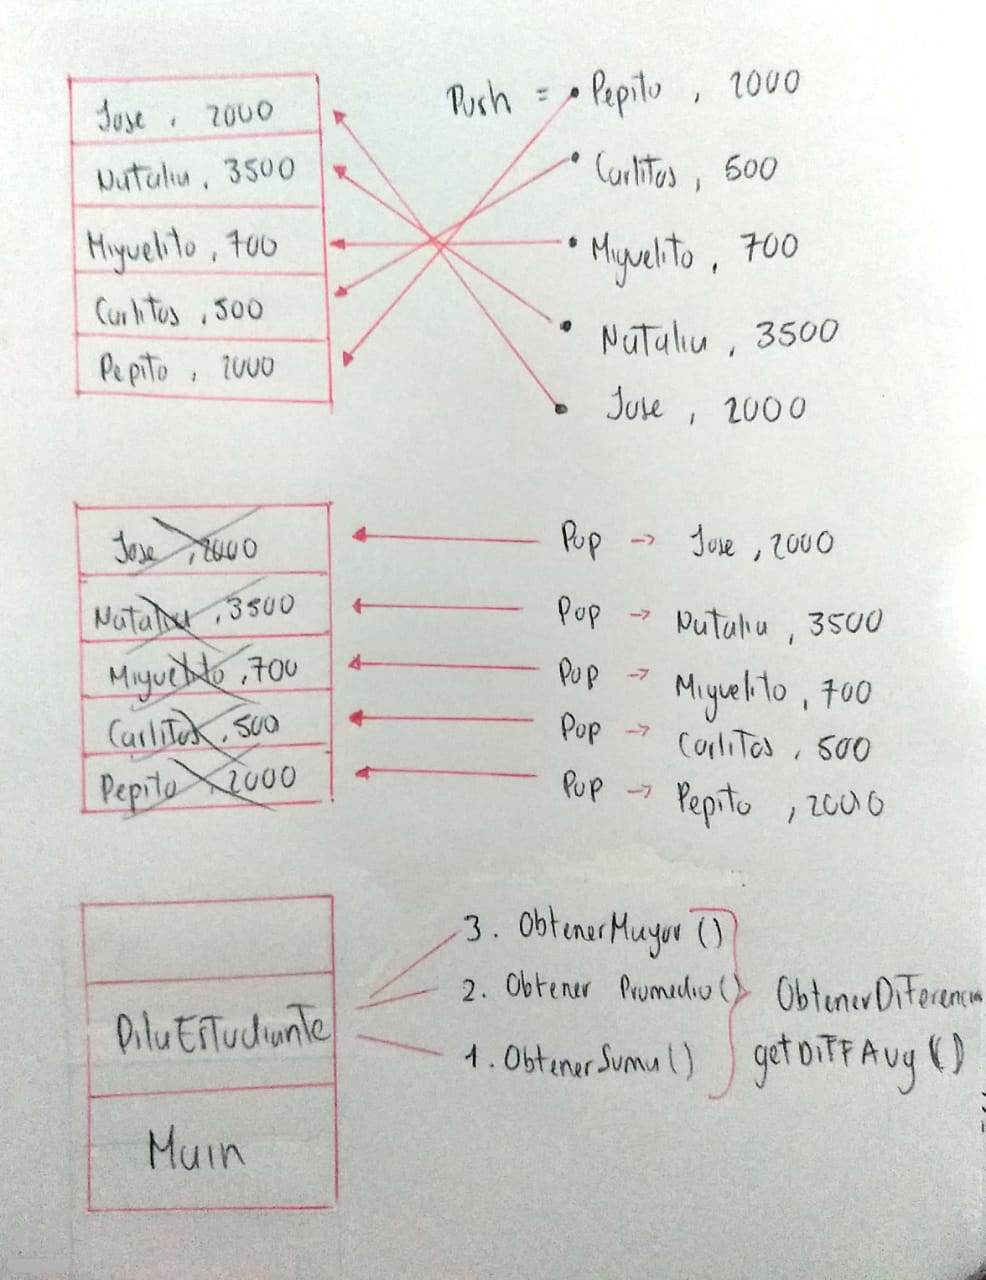 Jose , 2000
Natalia , 3500
Miguelito , 700
Carlitos , 500
Pepito , 2000
Push = • Pepito , 2000
• Carlitos , 500
• Miguelito , 700
• Natalia , 3500
• Jose , 2000
Jose , 2000
Natalia , 3500
Miguelito , 700
Carlitos , 500
Pepito , 2000
Pop → Jose , 2000
Pop → Natalia , 3500
Pop → Miguelito , 700
Pop → Carlitos , 500
Pop → Pepito , 2000
PilaEstudiante
Main
3. ObtenerMayor ()
2. Obtener Promedio()
1. ObtenerSuma()
ObtenerDiferencia
getDiffAvg ()